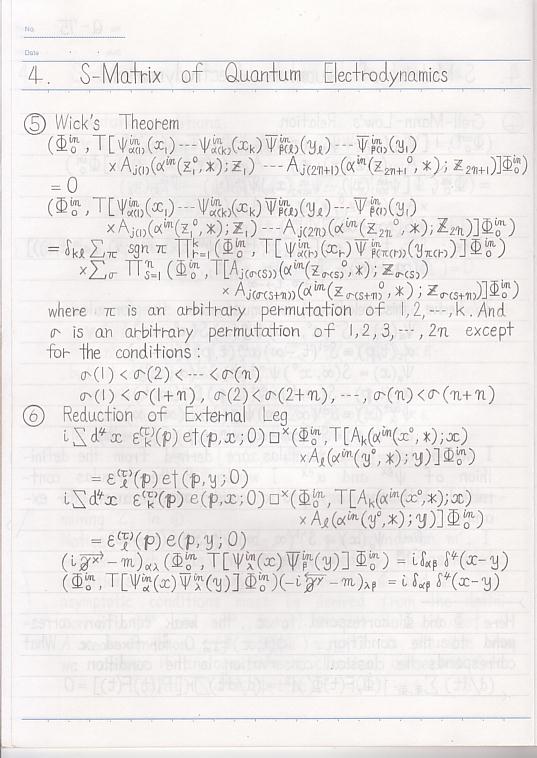 No.
Date
4. S-Matrix of Quantum Electrodynamics
⑤ Wick's Theorem
(Φ₀ⁱⁿ, T[Ψ^{in}_{α(1)}(x₁)---Ψ^{in}_{α(k)}(x_k) Ψ̄^{in}_{β(l)}(y_l)---Ψ̄^{in}_{β(1)}(y₁)
× A_{j(1)}(α^{in}(z₁⁰,*); z₁) --- A_{j(2n+1)}(α^{in}(z⁰_{2n+1},*); z_{2n+1})]Φ₀ⁱⁿ)
= 0
(Φ₀ⁱⁿ, T[Ψ^{in}_{α(1)}(x₁)---Ψ^{in}_{α(k)}(x_k) Ψ̄^{in}_{β(l)}(y_l)---Ψ̄^{in}_{β(1)}(y₁)
× A_{j(1)}(α^{in}(z₁⁰,*); z₁) --- A_{j(2n)}(α^{in}(z⁰_{2n},*); z_{2n})]Φ₀ⁱⁿ)
= δ_{kl} Σ_π sgn π Π^k_{r=1} (Φ₀ⁱⁿ, T[Ψ^{in}_{α(r)}(x_r) Ψ̄^{in}_{β(π(r))}(y_{π(r)})]Φ₀ⁱⁿ)
× Σ_σ Π^n_{s=1} (Φ₀ⁱⁿ, T[A_{j(σ(s))}(α^{in}(z⁰_{σ(s)},*); z_{σ(s)})
× A_{j(σ(s+n))}(α^{in}(z⁰_{σ(s+n)},*); z_{σ(s+n)})]Φ₀ⁱⁿ)
where π is an arbitrary permutation of 1,2,---,k. And
σ is an arbitrary permutation of 1,2,3,---,2n except
for the conditions:
σ(1)<σ(2)<---<σ(n)
σ(1)<σ(1+n), σ(2)<σ(2+n), ---, σ(n)<σ(n+n)
⑥ Reduction of External Leg
i∑d⁴x ε_k^{(τ)}(p) e†(p,x;0) □ˣ (Φ₀ⁱⁿ, T[A_k(α^{in}(x⁰,*);x)
× A_l(α^{in}(y⁰,*);y)]Φ₀ⁱⁿ)
= ε_l^{(τ)}(p) e†(p,y;0)
i∑d⁴x ε_k^{(τ)}(p) e(p,x;0) □ˣ (Φ₀ⁱⁿ, T[A_k(α^{in}(x⁰,*);x)
× A_l(α^{in}(y⁰,*);y)]Φ₀ⁱⁿ)
= ε_l^{(τ)}(p) e(p,y;0)
(i∂̸ˣ − m)_{αλ} (Φ₀ⁱⁿ, T[Ψ_λ^{in}(x) Ψ̄_β^{in}(y)]Φ₀ⁱⁿ) = iδ_{αβ} δ⁴(x−y)
(Φ₀ⁱⁿ, T[Ψ_α^{in}(x) Ψ̄_λ^{in}(y)]Φ₀ⁱⁿ)(−i∂̸ʸ − m)_{λβ} = iδ_{αβ} δ⁴(x−y)